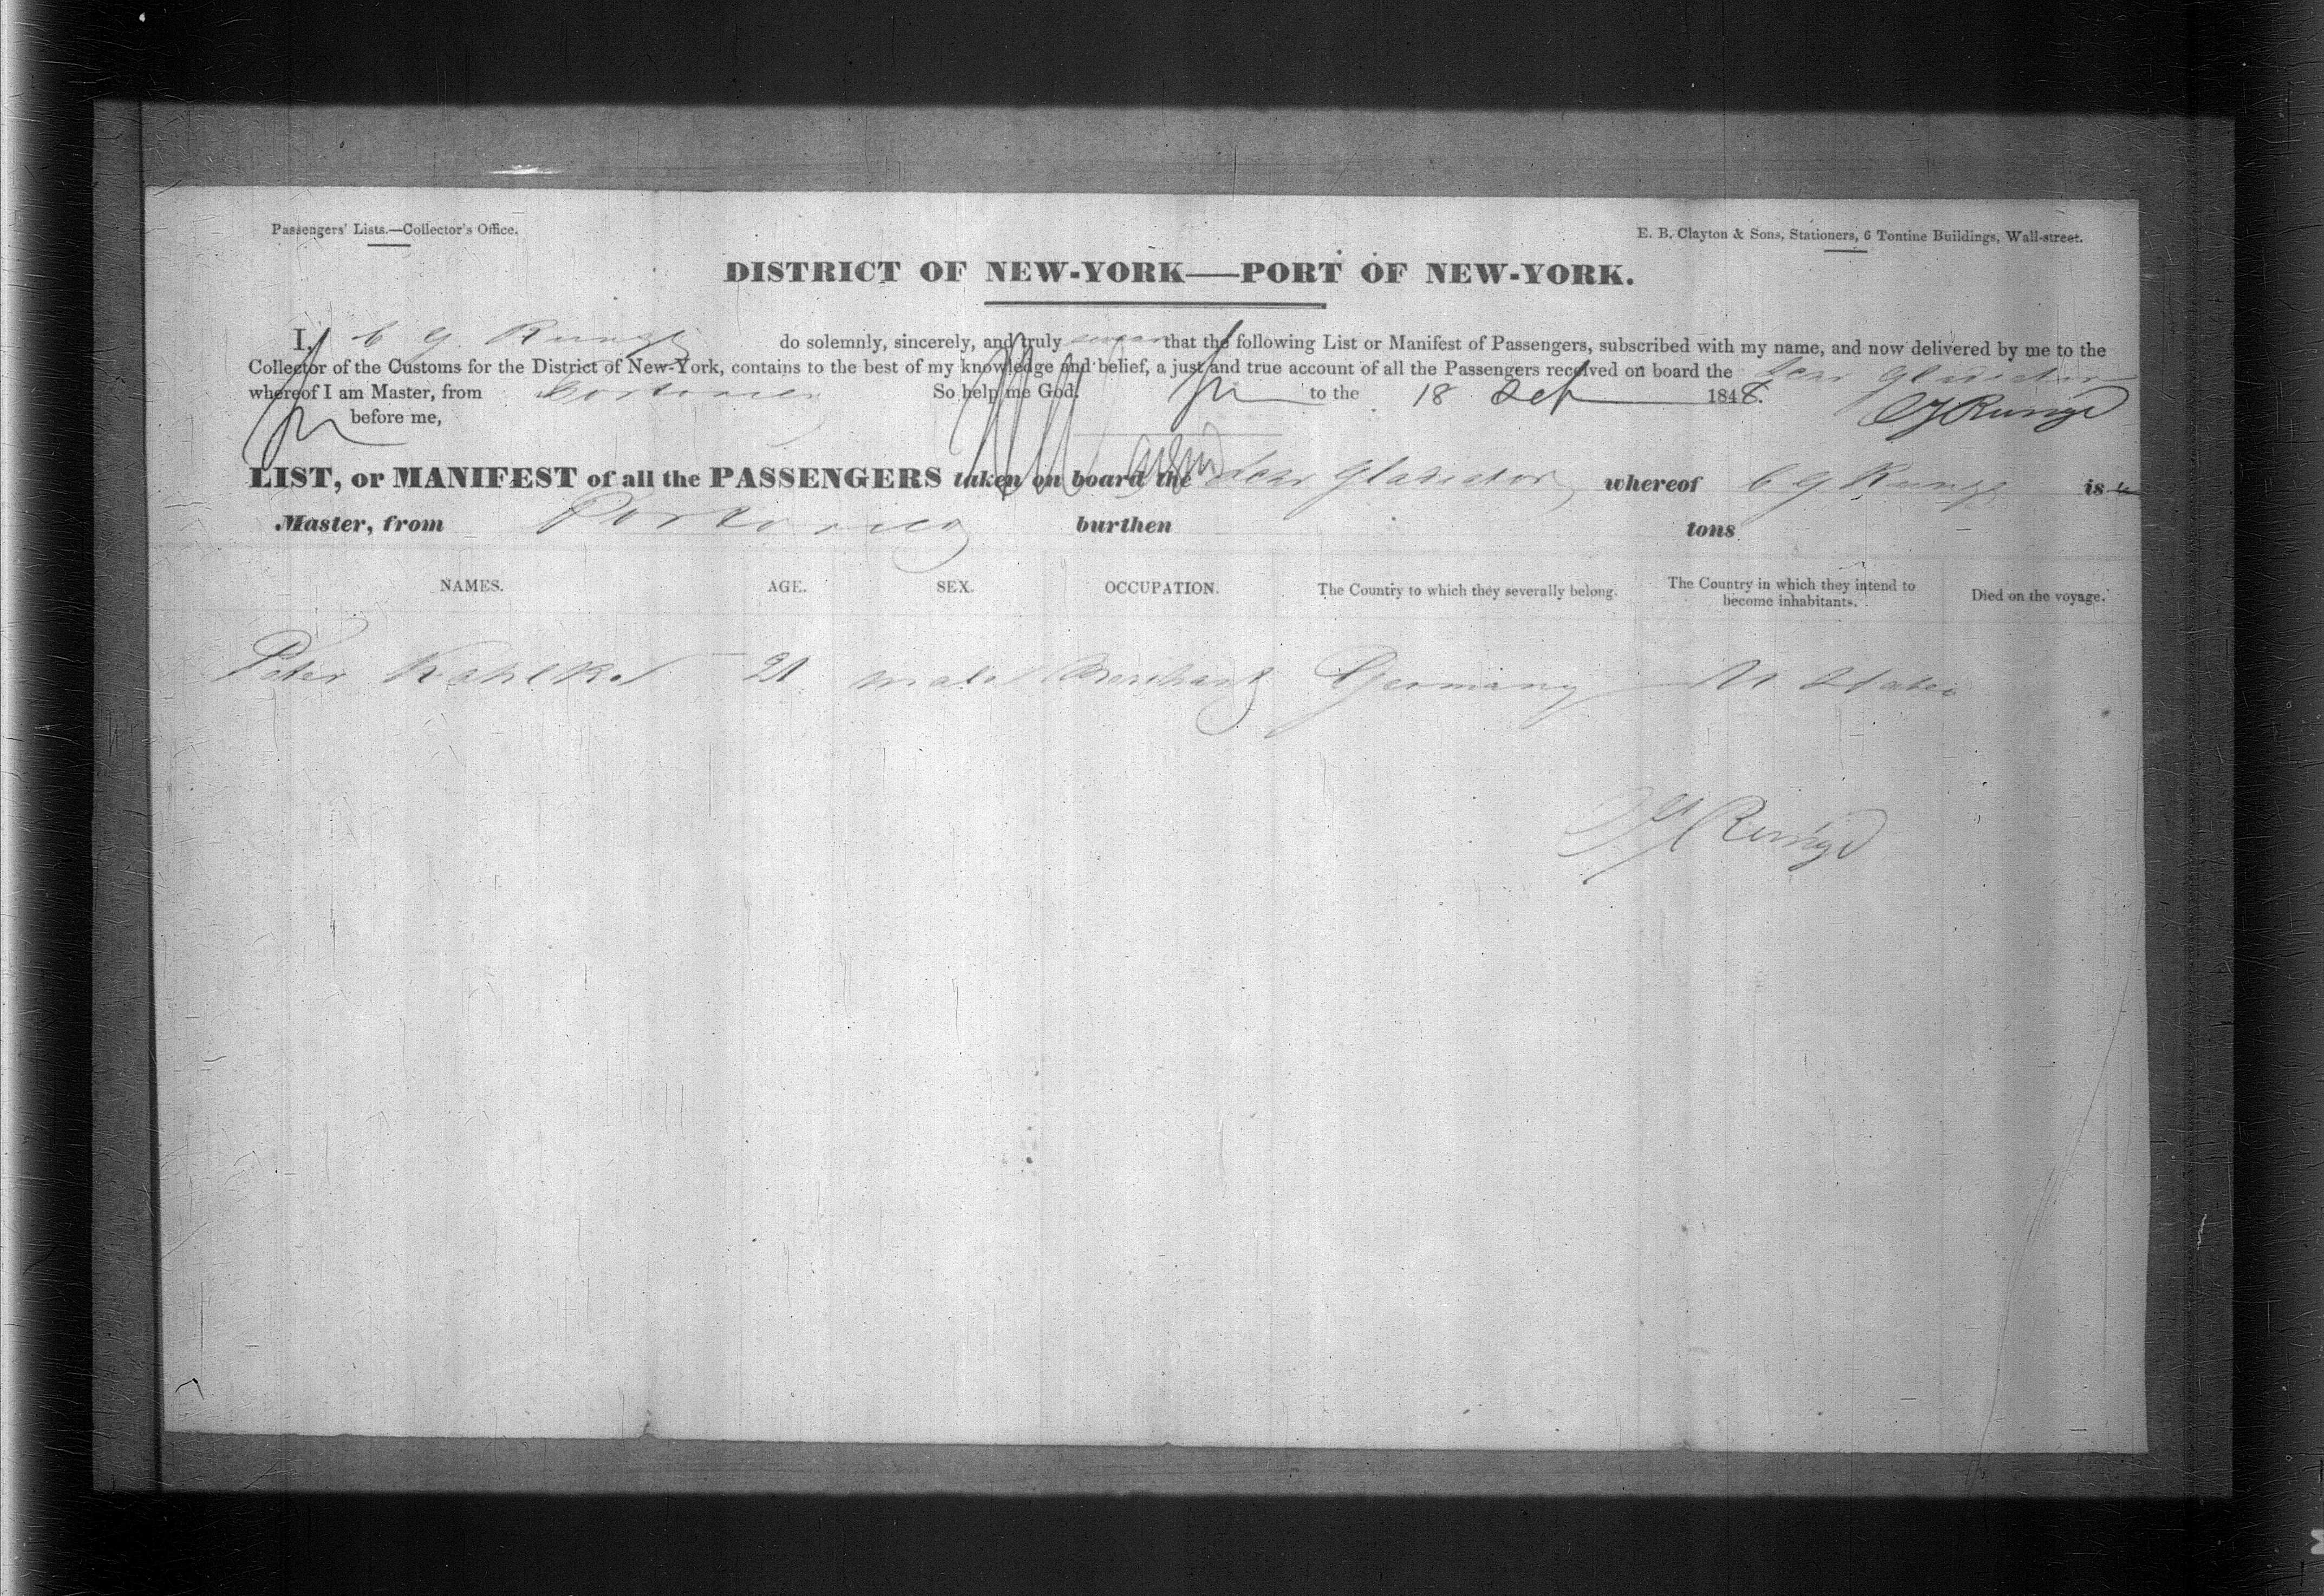 Passengers' Lists.—Collector's Office.
E. B. Clayton & Sons, Stationers, 6 Tontine Buildings, Wall-street.
DISTRICT OF NEW-YORK—PORT OF NEW-YORK.
I, C G Runge do solemnly, sincerely, and truly swear that the following List or Manifest of Passengers, subscribed with my name, and now delivered by me to the
Collector of the Customs for the District of New-York, contains to the best of my knowledge and belief, a just and true account of all the Passengers received on board the Gladiator
whereof I am Master, from Portorico So help me God. to the 18 Oct 1848.
CG Runge
before me,
LIST, or MANIFEST of all the PASSENGERS taken on board the Gladiator whereof C G Runge is
Master, from Portorico burthen tons
NAMES. AGE. SEX. OCCUPATION. The Country to which they severally belong. The Country in which they intend to become inhabitants. Died on the voyage.
Peter Kahlke 21 male Merchant Germany U States
CG Runge